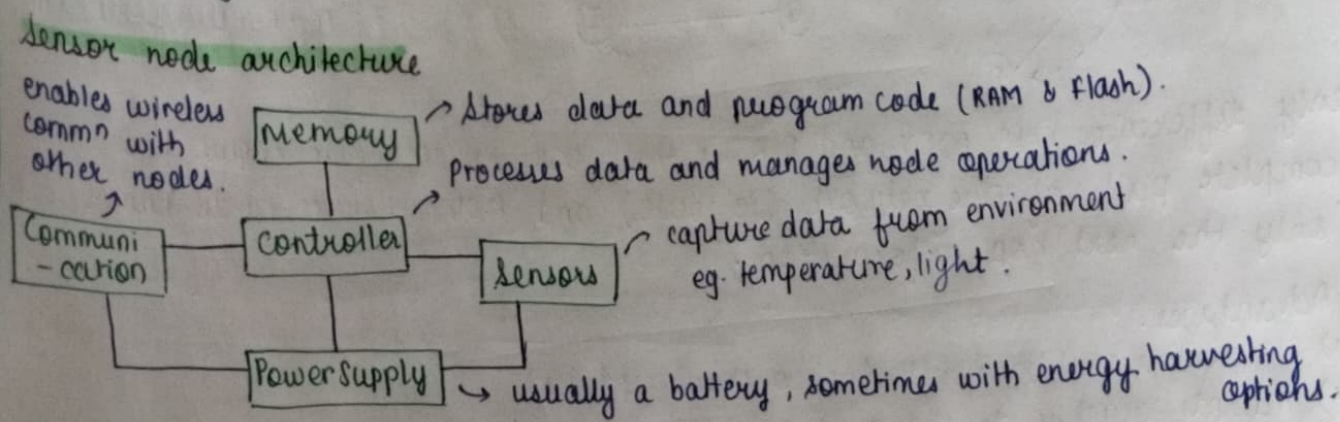 Sensor node architecture
enables wireless
commn with
other nodes.
Memory
Stores data and program code (RAM & Flash).
Processes data and manages node operations.
Communi
-cation
Controller
Sensors
capture data from environment
eg. temperature, light.
Power Supply
usually a battery, sometimes with energy harvesting
options.